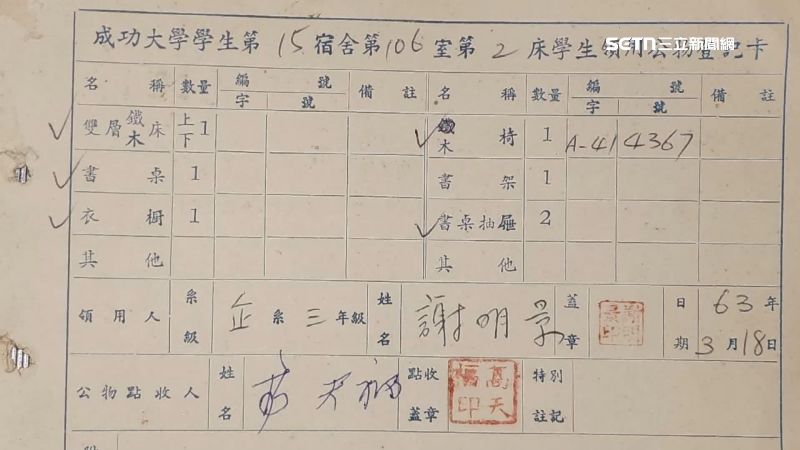 成功大學學生第15宿舍第106室第2床學生領用公物登記卡
SETN三立新聞網
名稱 數量 編號 備註 名稱 數量 編號 備註
字 號 字 號
雙層鐵木床 上下1 鐵木椅 1 A-41 4367
書桌 1 書架 1
衣櫥 1 書桌抽屜 2
其他 其他
領用人 系級 企系三年級 姓名 謝明 蓋章 日期 63年3月18日
公物點收人 姓名 點收蓋章 高天福印 特別註記